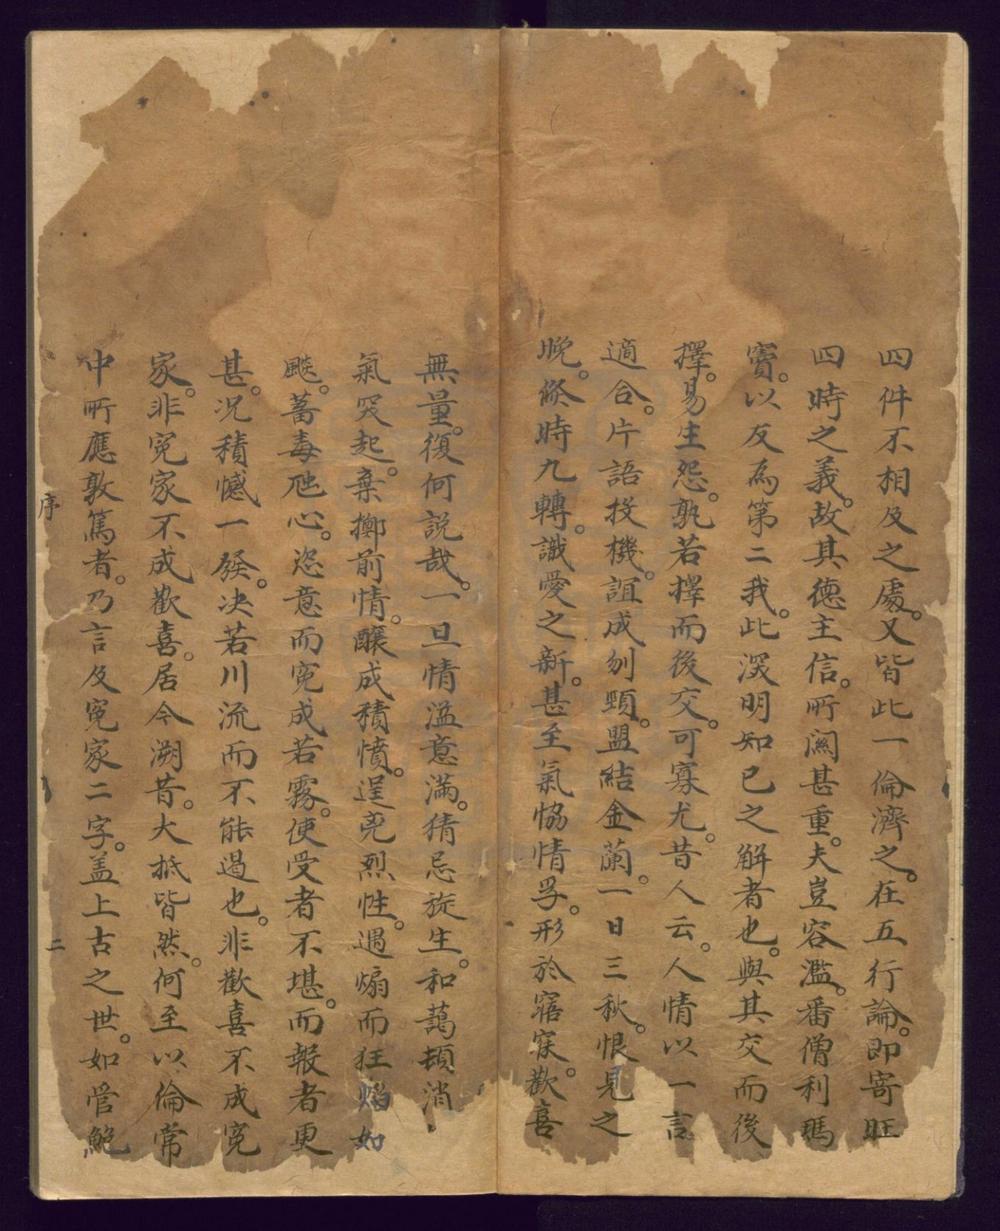 四件不相及之處。又皆此一倫濟之。在五行論。即寄旺
四時之義。故其德主信。所關甚重。夫豈容濫。番僧利瑪
竇。以友為第二我。此深明知己之解者也。與其交而後
擇。易生怨。孰若擇而後交。可寡尤。昔人云。人情以一言
適合。片語投機。誼成刎頸。盟結金蘭。一日三秋。恨見之
晚。倐時九轉。識愛之新。甚至氣恊情孚。形於寤寐。歡喜
無量。復何説哉。一旦情溢意滿。猜忌旋生。和藹頓消
氣突起。棄擲前情。釀成積憤。逞兇烈性。遇煽而狂焰如
飈。蓄毒虺心。恣意而寃成若霧。使受者不堪。而報者更
甚。况積憾一發。决若川流而不能遏也。非歡喜不成寃
家。非寃家不成歡喜。居今溯昔。大抵皆然。何至以倫常
中所應敦篤者。乃言及寃家二字。盖上古之世。如管鮑
序
二